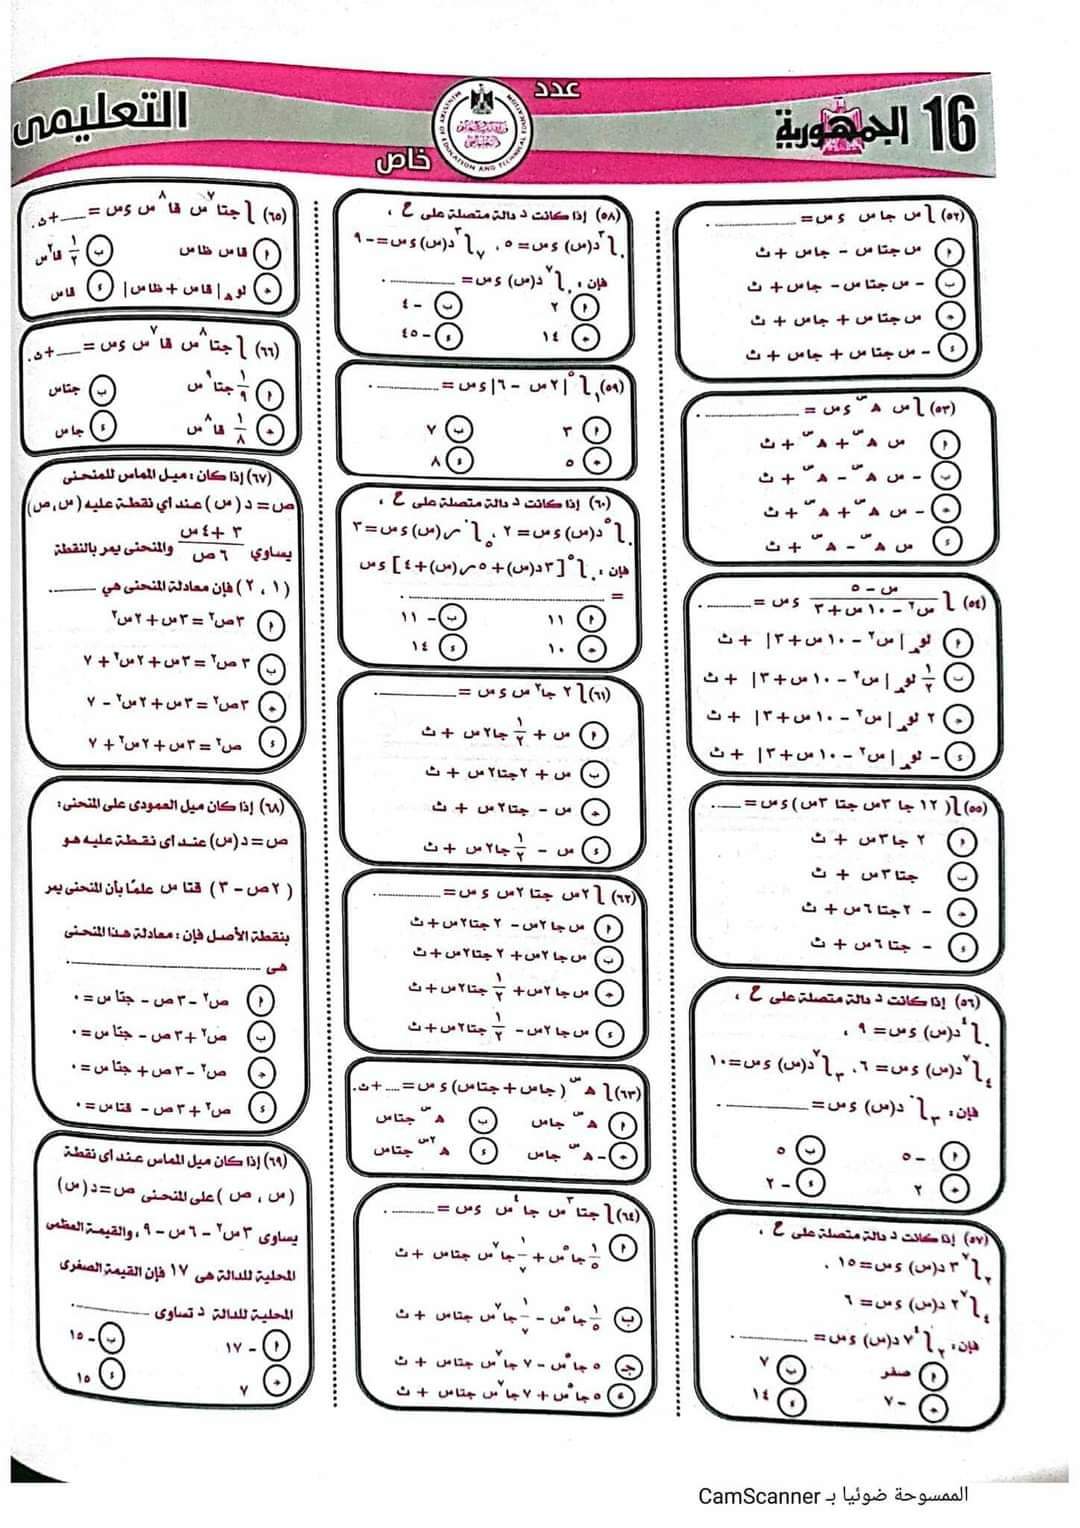 16 الجمهورية
عدد
خاص
التعليمى
MINISTRY OF EDUCATION AND TECHNICAL EDUCATION
(٥٢) ∫ س جاس ءس = ............ .
أ س جتاس - جاس + ث
ب - س جتاس - جاس + ث
ج س جتاس + جاس + ث
ء - س جتاس + جاس + ث
(٥٣) ∫ س هـ^س ءس = ............ .
أ س هـ^س + هـ^س + ث
ب - س هـ^س - هـ^س + ث
ج - س هـ^س + هـ^س + ث
ء س هـ^س - هـ^س + ث
(٥٤) ∫ (س - ٥)/(س٢ - ١٠س + ٣) ءس = ........ .
أ لوهـ |س٢ - ١٠س + ٣| + ث
ب ١/٢ لوهـ |س٢ - ١٠س + ٣| + ث
ج ٢ لوهـ |س٢ - ١٠س + ٣| + ث
ء - لوهـ |س٢ - ١٠س + ٣| + ث
(٥٥) ∫(١٢ جا ٣س جتا ٣س) ءس = .....
أ ٢ جا٣س + ث
ب جتا٣س + ث
ج - ٢جتا٦س + ث
ء - جتا٦س + ث
(٥٦) إذا كانت د دالة متصلة على ح ،
∫ من ٠ إلى ٤ د(س) ءس = ٩ ،
∫ من ٤ إلى ٧ د(س) ءس = ٦ ، ∫ من ٣ إلى ٧ د(س) ءس = ١٠
فإن : ∫ من ٣ إلى ٠ د(س) ءس = ............
أ - ٥ ب ٥
ج ٢ ء - ٢
(٥٧) إذا كانت د دالة متصلة على ح ،
∫ من ٢ إلى ٧ ٣د(س) ءس = ١٥ ،
∫ من ٤ إلى ٧ ٢د(س) ءس = ٦
فإن : ∫ من ٢ إلى ٤ ٧د(س) ءس = ............ .
أ صفر ب ٧
ج - ٧ ء ١٤
(٥٨) إذا كانت د دالة متصلة على ح ،
∫ من ٠ إلى ٣ د(س) ءس = ٥ ، ∫ من ٧ إلى ٣ د(س) ءس = - ٩
فإن : ∫ من ٠ إلى ٧ د(س) ءس = ............ .
أ ٢ ب - ٤
ج ١٤ ء - ٤٥
(٥٩) ∫ من ١ إلى ٥ |٢س - ٦| ءس = ............ .
أ ٣ ب ٧
ج ٥ ء ٨
(٦٠) إذا كانت د دالة متصلة على ح ،
∫ من ٠ إلى ٥ د(س) ءس = ٢ ، ∫ من ٥ إلى ٠ ر(س) ءس = ٣
فإن : ∫ من ٠ إلى ٥ [٣د(س) + ٥ر(س) + ٤] ءس
= ............ .
أ ١١ ب - ١١
ج ١٠ ء ١٤
(٦١) ∫ ٢ جا٢ س ءس = ............ .
أ س + ١/٢ جا٢س + ث
ب س + ٢جتا٢س + ث
ج س - جتا٢س + ث
ء س - ١/٢ جا٢س + ث
(٦٢) ∫ ٢س جتا ٢س ءس = ............
أ س جا٢س - ٢ جتا٢س + ث
ب س جا٢س + ٢ جتا٢س + ث
ج س جا٢س + ١/٢ جتا٢س + ث
ء س جا٢س - ١/٢ جتا٢س + ث
(٦٣) ∫ هـ^س (جاس + جتاس) ءس = .... + ث.
أ هـ^س جاس ب هـ^س جتاس
ج - هـ^س جاس ء هـ^٢س جتاس
(٦٤) ∫ جتا٣س جا٤س ءس = ........ .
أ ١/٥ جا٥س + ١/٧ جا٧س جتاس + ث
ب ١/٥ جا٥س - ١/٧ جا٧س جتاس + ث
ج ٥ جا٥س - ٧ جا٧س جتاس + ث
ء ٥ جا٥س + ٧ جا٧س جتاس + ث
(٦٥) ∫ جتا٧س قا٨س ءس = .... + ث.
أ قاس ظاس ب ١/٢ قا٢س
ج لوهـ |قاس + ظاس| ء قاس
(٦٦) ∫ جتا٨س قا٧س ءس = .... + ث.
أ ١/٩ جتا٩س ب جتاس
ج ١/٨ قا٨س ء جاس
(٦٧) إذا كان : ميل المماس للمنحنى
ص = د (س) عند أى نقطة عليه (س ، ص)
يساوي (٣ + ٤س)/(٦ص) والمنحنى يمر بالنقطة
(١ ، ٢) فإن معادلة المنحنى هي ........
أ ٣ص٢ = ٣س + ٢س٢
ب ٣ص٢ = ٣س + ٢س٢ + ٧
ج ٣ص٢ = ٣س + ٢س٢ - ٧
ء ص٢ = ٣س + ٢س٢ + ٧
(٦٨) إذا كان ميل العمودى على المنحنى :
ص = د(س) عند أى نقطة عليه هو
(٢ص - ٣) قتا س علمًا بأن المنحنى يمر
بنقطة الأصل فإن : معادلة هذا المنحنى
هى ............
أ ص٢ - ٣ص - جتاس = ٠
ب ص٢ + ٣ص - جتاس = ٠
ج ص٢ - ٣ص + جتاس = ٠
ء ص٢ + ٣ص - قتاس = ٠
(٦٩) إذا كان ميل المماس عند أى نقطة
(س ، ص) على المنحنى ص = د(س)
يساوى ٣س٢ - ٦س - ٩ ، والقيمة العظمى
المحلية للدالة هى ١٧ فإن القيمة الصغرى
المحلية للدالة د تساوى ............
أ - ١٧ ب - ١٥
ج ٧ ء ١٥
الممسوحة ضوئيا بـ CamScanner